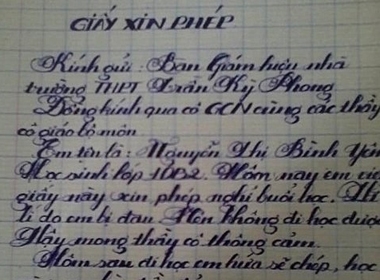 GIẤY XIN PHÉP
Kính gửi: Ban Giám hiệu nhà
trường THPT Trần Kỳ Phong
Đồng kính qua cô GCN cùng các thầy
cô giáo bộ môn
Em tên là: Nguyễn Thị Bình Yên
Học sinh lớp 10B2. Hôm nay em viết
giấy này xin phép nghỉ buổi học. Vì
lí do em bị đau Nên không đi học được
Vậy mong thầy cô thông cảm.
Hôm sau đi học em hứa sẽ chép, học